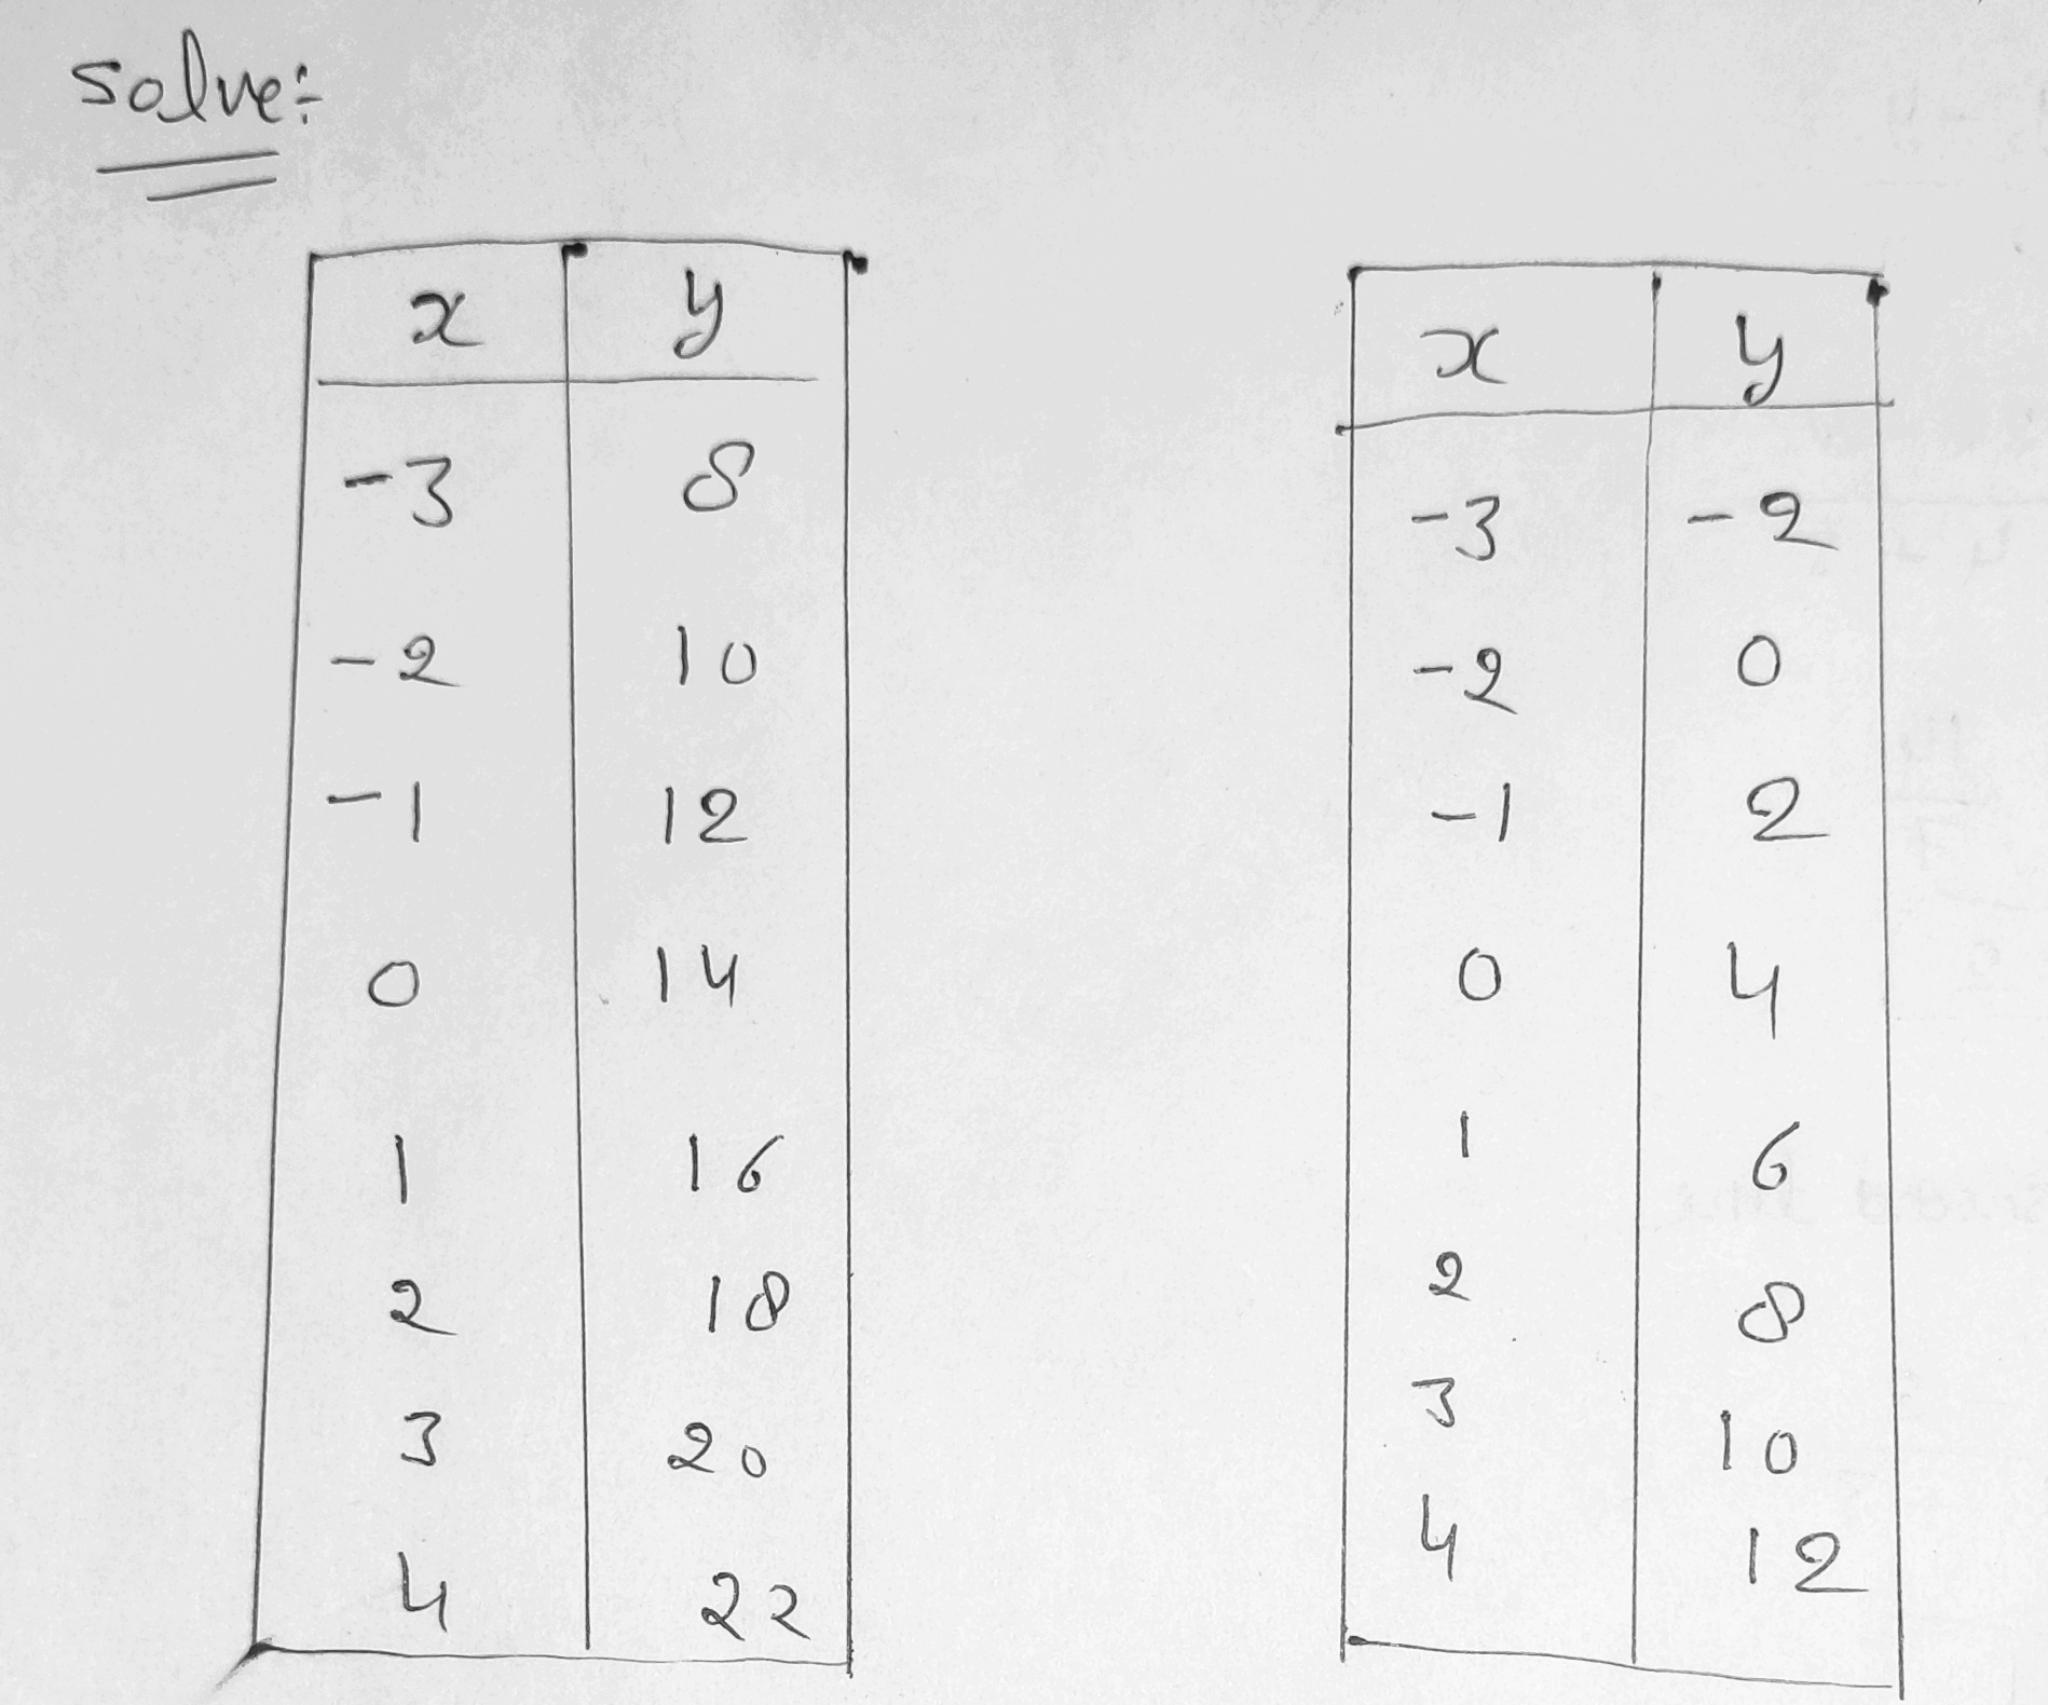 Solve:
x y
-3 8
-2 10
-1 12
0 14
1 16
2 18
3 20
4 22
x y
-3 -2
-2 0
-1 2
0 4
1 6
2 8
3 10
4 12